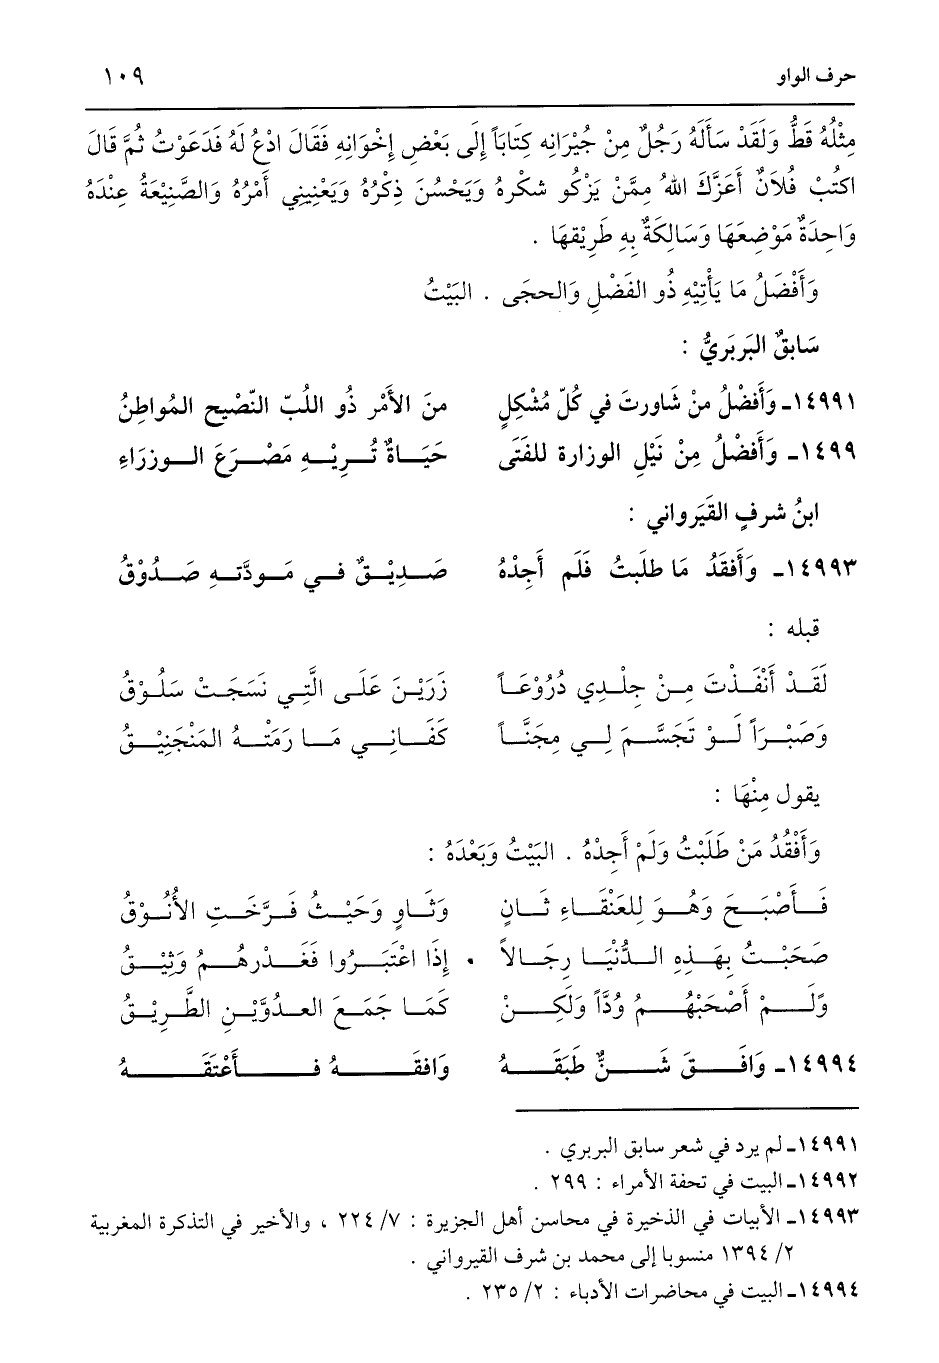 حرف الواو ١٠٩
مِثْلُهُ قَطُّ وَلَقَدْ سَأَلَهُ رَجُلٌ مِنْ جُيْرَانِه كِتَابَاً إِلَى بَعْضِ إِخْوَانِهِ فَقَالَ ادْعُ لَهُ فَدَعَوْتُ ثُمَّ قَالَ
اكتُبْ فُلَانٌ أَعَزَّكَ اللهُ مِمَّنْ يَزْكُو شكْرهُ وَيَحْسُنَ ذِكْرُهُ وَيَعْنِينِي أَمْرُهُ وَالصَّنِيْعَةُ عِنْدَهُ
وَاحِدَةٌ مَوْضِعَهَا وَسَالِكَةٌ بِهِ طَرِيْقهَا .
وَأَفْضَلُ مَا يَأْتِيْهِ ذُو الفَضْلِ وَالحجَى . البَيْتُ
سَابقٌ البَربَريُّ :
١٤٩٩١ـ وَأَفضْلُ منْ شَاورتَ في كُلّ مُشْكِلٍ منَ الأَمْر ذُو اللبّ النّصْيح المُواطِنُ
١٤٩٩ـ وَأَفضْلُ مِنْ نَيْلِ الوزارة للفَتَى حَيَـاةٌ تُـرِيْـهِ مَصْـرَعَ الـوزرَاءِ
ابنُ شرفٍ القَيَرواني :
١٤٩٩٣ـ وَأَفقَدُ مَا طلَبتُ فَلَم أَجِدْهُ صَـدِيْـقٌ فـي مَـودتَّـه صَـدُوْقُ
قبله :
لَقَـدْ أَنْفَـذْتَ مِـنْ جِلْـدِي دُرُوْعَـاً زَرَيْـنَ عَلَـى الَّتِـي نَسَجَـتْ سَلُـوْقُ
وَصَبْـرَاً لَـوْ تَجَسَّـمَ لِـي مِجَنَّـاً كَفَـانِـي مَـا رَمَتْـهُ المَنْجَنِيْـقُ
يقول مِنْهَا :
وَأَفْقُدُ مَنْ طَلَبْتُ وَلَمْ أَجِدْهُ . البَيْتُ وَبَعْدَهُ :
فَـأَصْبَـحَ وَهُـوَ لِلعَنْقَـاءِ ثَـانٍ وَثَـاوٍ وَحَيْـثُ فَـرَّخَـتِ الأُنُـوْقُ
صَحَبْـتُ بِهَـذِهِ الـدُّنْيَـا رِجَـالاً إِذَا اعْتَبَـرُوا فَغَـدْرهُـمُ وَثِيْـقُ
وَلَـمْ أَصْحَبْهُـمُ وُدَّاً وَلَكِـنْ كَمَـا جَمَـعَ العـدُوَّيْـنِ الطَّرِيْـقُ
١٤٩٩٤ـ وَافَـقَ شَـنٌّ طَبَقَـهُ وَافقَـهُ فَـأَعْتَقَـهُ
١٤٩٩١ـ لم يرد في شعر سابق البربري .
١٤٩٩٢ـ البيت في تحفة الأمراء : ٢٩٩ .
١٤٩٩٣ـ الأبيات في الذخيرة في محاسن أهل الجزيرة : ٧/ ٢٢٤ ، والأخير في التذكرة المغربية
٢/ ١٣٩٤ منسوبا إلى محمد بن شرف القيرواني .
١٤٩٩٤ـ البيت في محاضرات الأدباء : ٢/ ٢٣٥ .